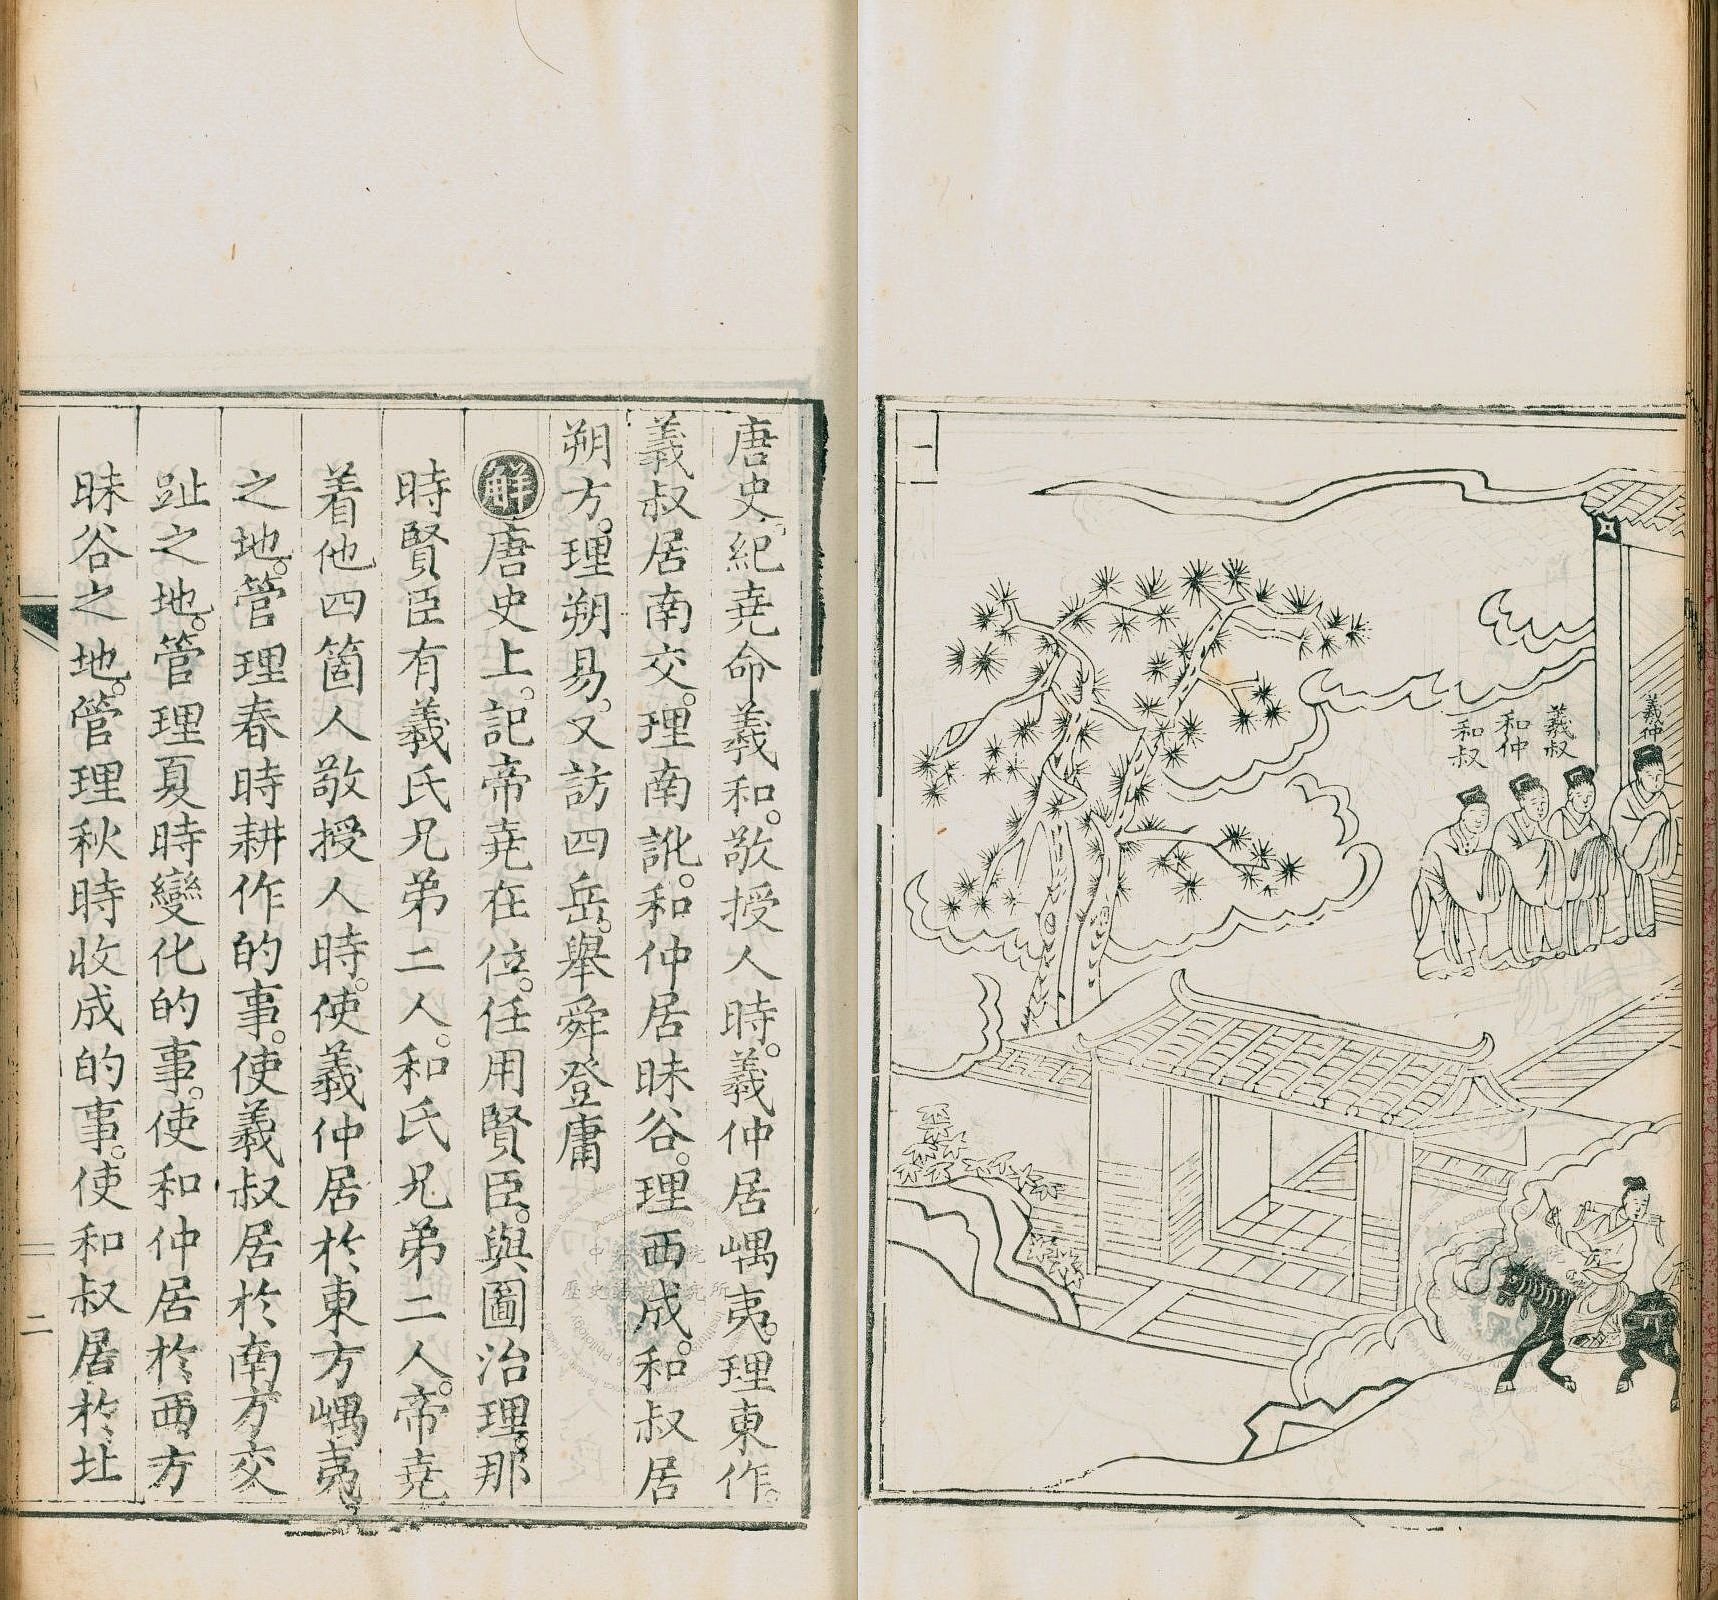 二
羲仲
羲叔
和仲
和叔
唐史。紀堯命羲和。敬授人時。羲仲居嵎夷。理東作。
羲叔居南交。理南訛。和仲居昧谷。理西成。和叔居
朔方。理朔易。又訪四岳。舉舜登庸
解唐史上。記帝堯在位。任用賢臣。與圖治理。那
時賢臣有羲氏兄弟二人。和氏兄弟二人。帝堯
着他四箇人敬授人時。使羲仲居於東方嵎夷
之地。管理春時耕作的事。使羲叔居於南方交
趾之地。管理夏時變化的事。使和仲居於西方
昧谷之地。管理秋時收成的事。使和叔居於北
二